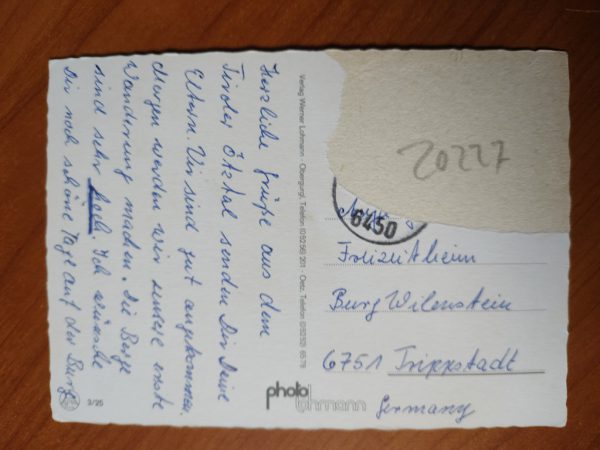 Herzliche Grüße aus dem
Tiroler Ötztal senden Dir Deine
Eltern. Wir sind gut angekommen.
Morgen werden wir unsere erste
Wanderung machen. Die Berge
sind sehr hoch. Ich wünsche
Dir noch schöne Tage auf der Burg
3/25
Verlag Werner Lohmann · Obergurgl, Telefon (05256) 201 · Oetz, Telefon (05252) 6578
photo
lohmann
20227
6450
Freizeitheim
Burg Wilenstein
6751 Trippstadt
Germany